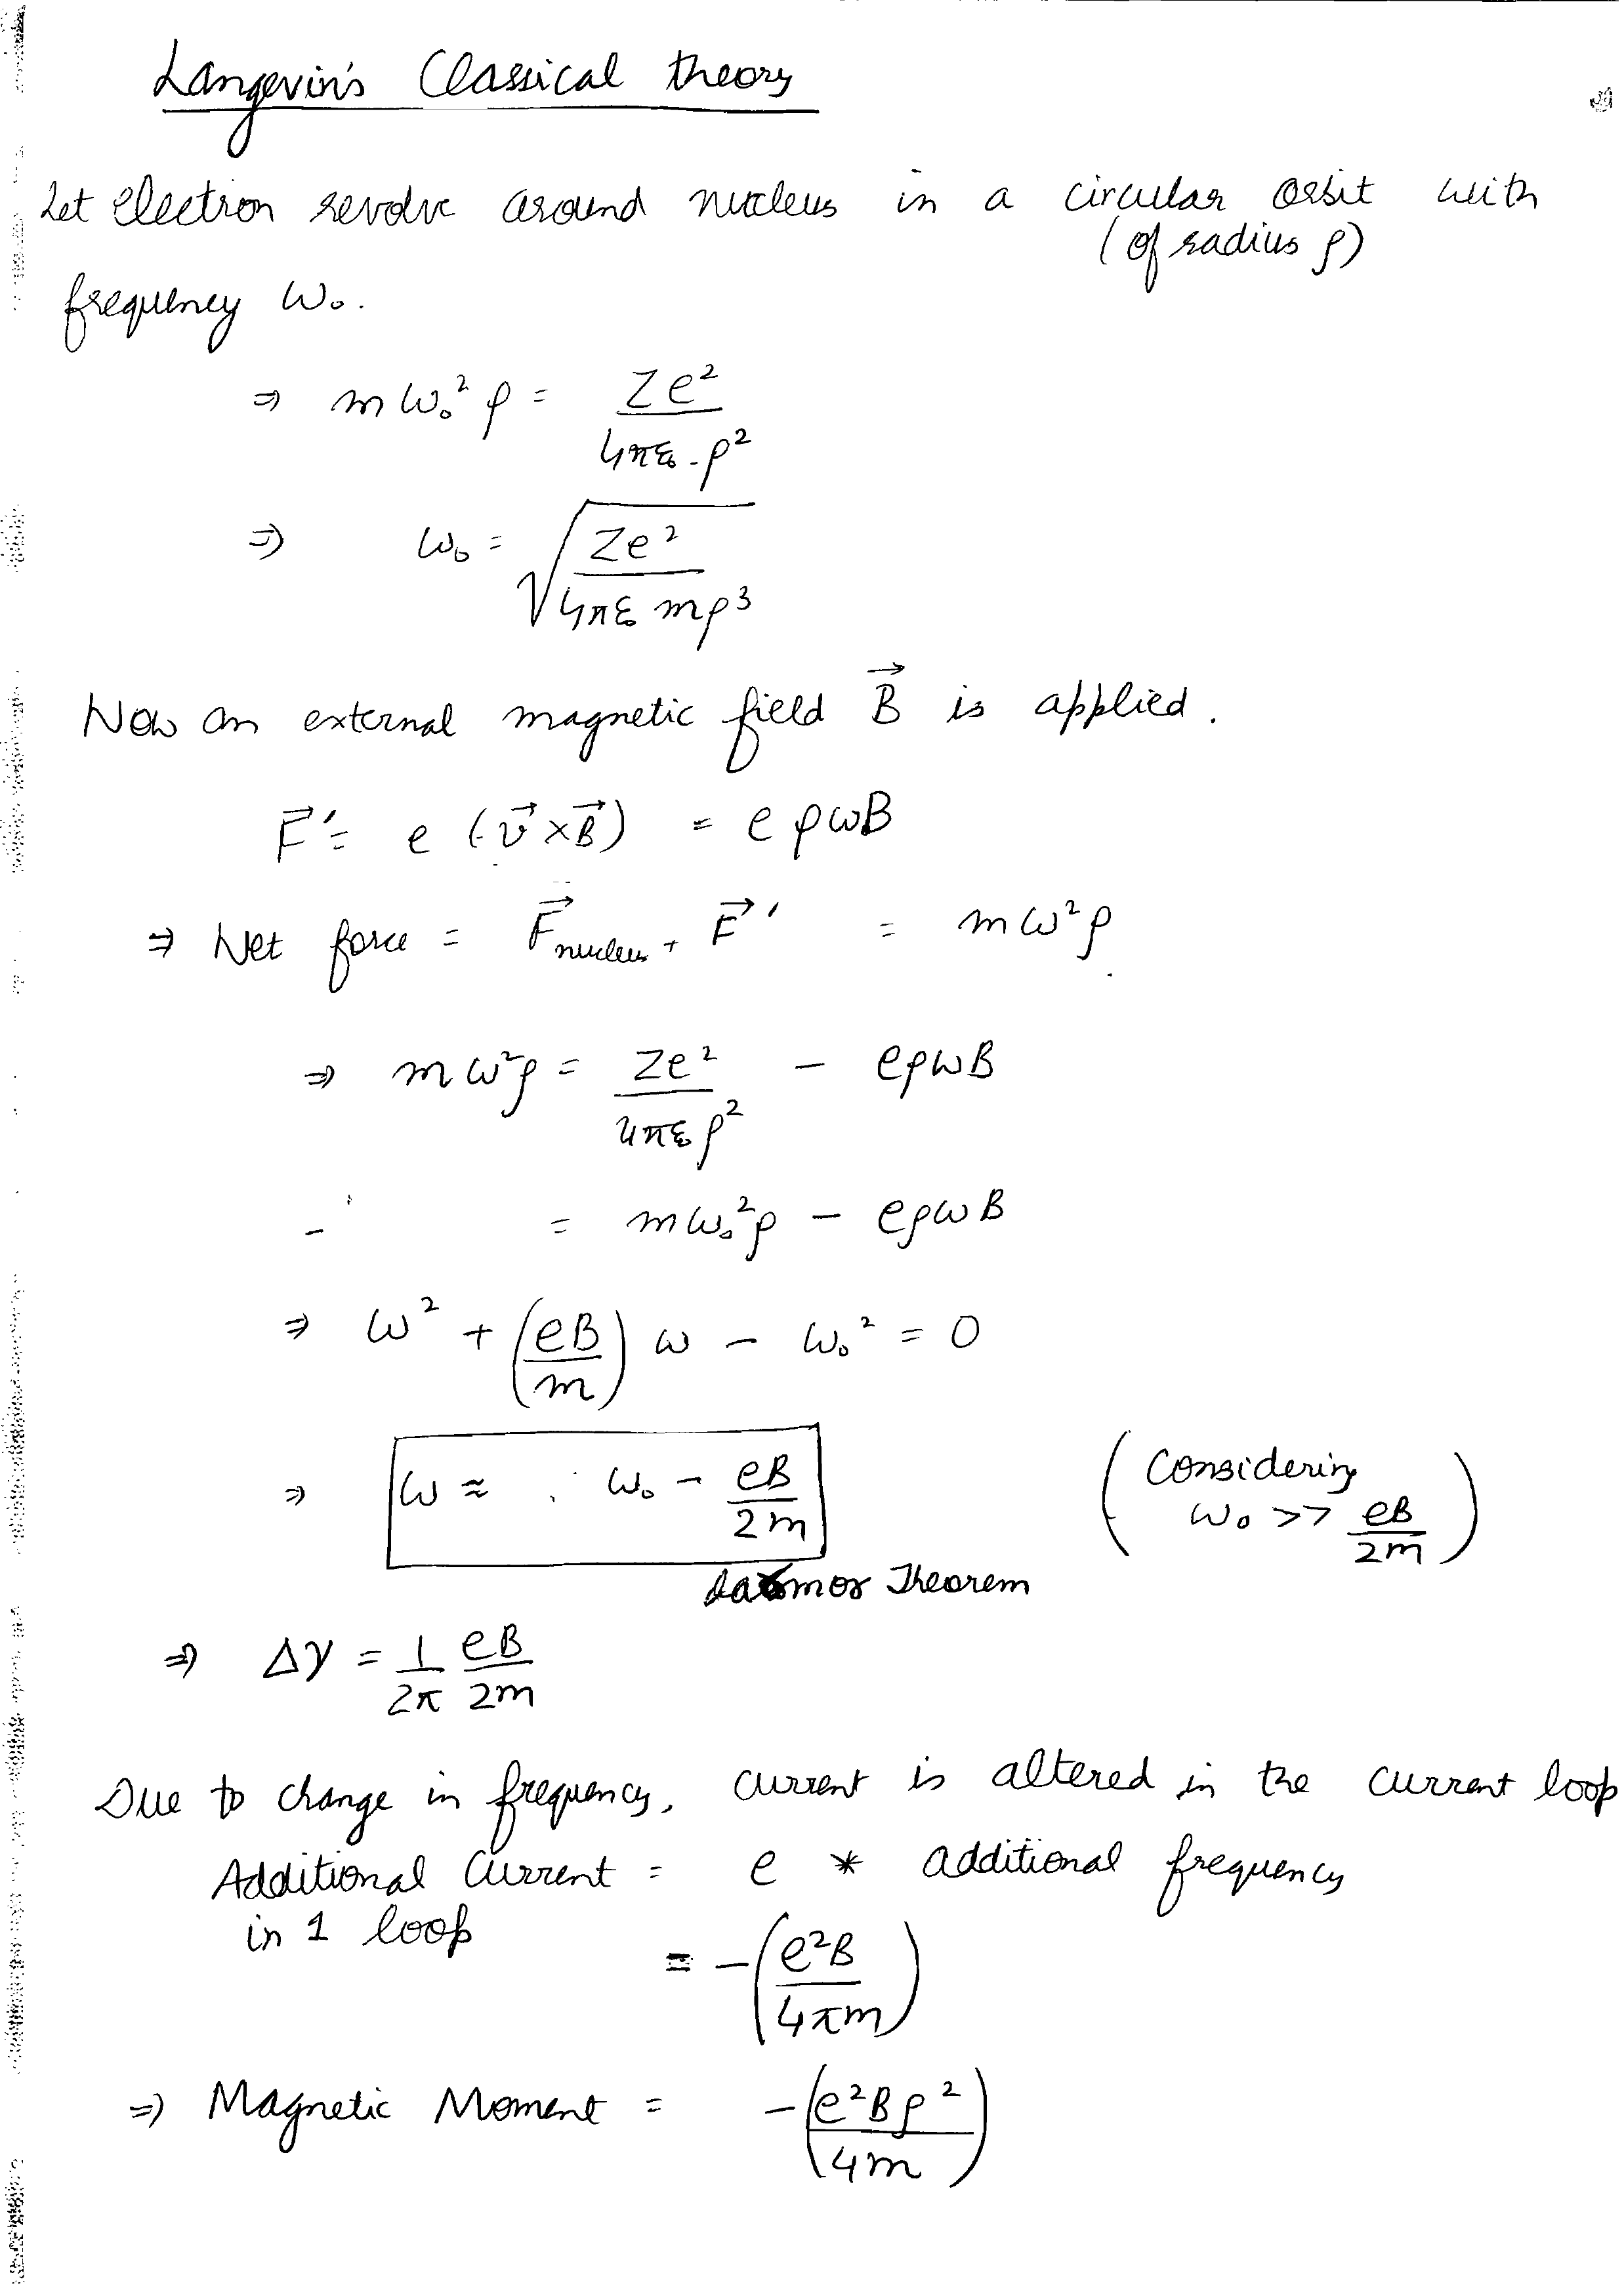 Langevin's Classical theory
Let electron revolve around nucleus in a circular orbit with
(of radius ρ)
frequency ω₀.
⇒ mω₀²ρ = Ze² / 4πε₀.ρ²
⇒ ω₀ = √(Ze² / 4πε₀ mρ³)
Now an external magnetic field B⃗ is applied.
F⃗' = e (-v⃗ × B⃗) = eρωB
⇒ Net force = F⃗nucleus + F⃗' = mω²ρ
⇒ mω²ρ = Ze² / 4πε₀ρ² - eρωB
= mω₀²ρ - eρωB
⇒ ω² + (eB/m) ω - ω₀² = 0
⇒ ω ≈ ω₀ - eB/2m (Considering ω₀ >> eB/2m)
Larmor Theorem
⇒ Δν = 1/2π eB/2m
Due to change in frequency, current is altered in the current loop
Additional Current = e * additional frequency
in 1 loop
= -(e²B / 4πm)
⇒ Magnetic Moment = -(e²Bρ² / 4m)